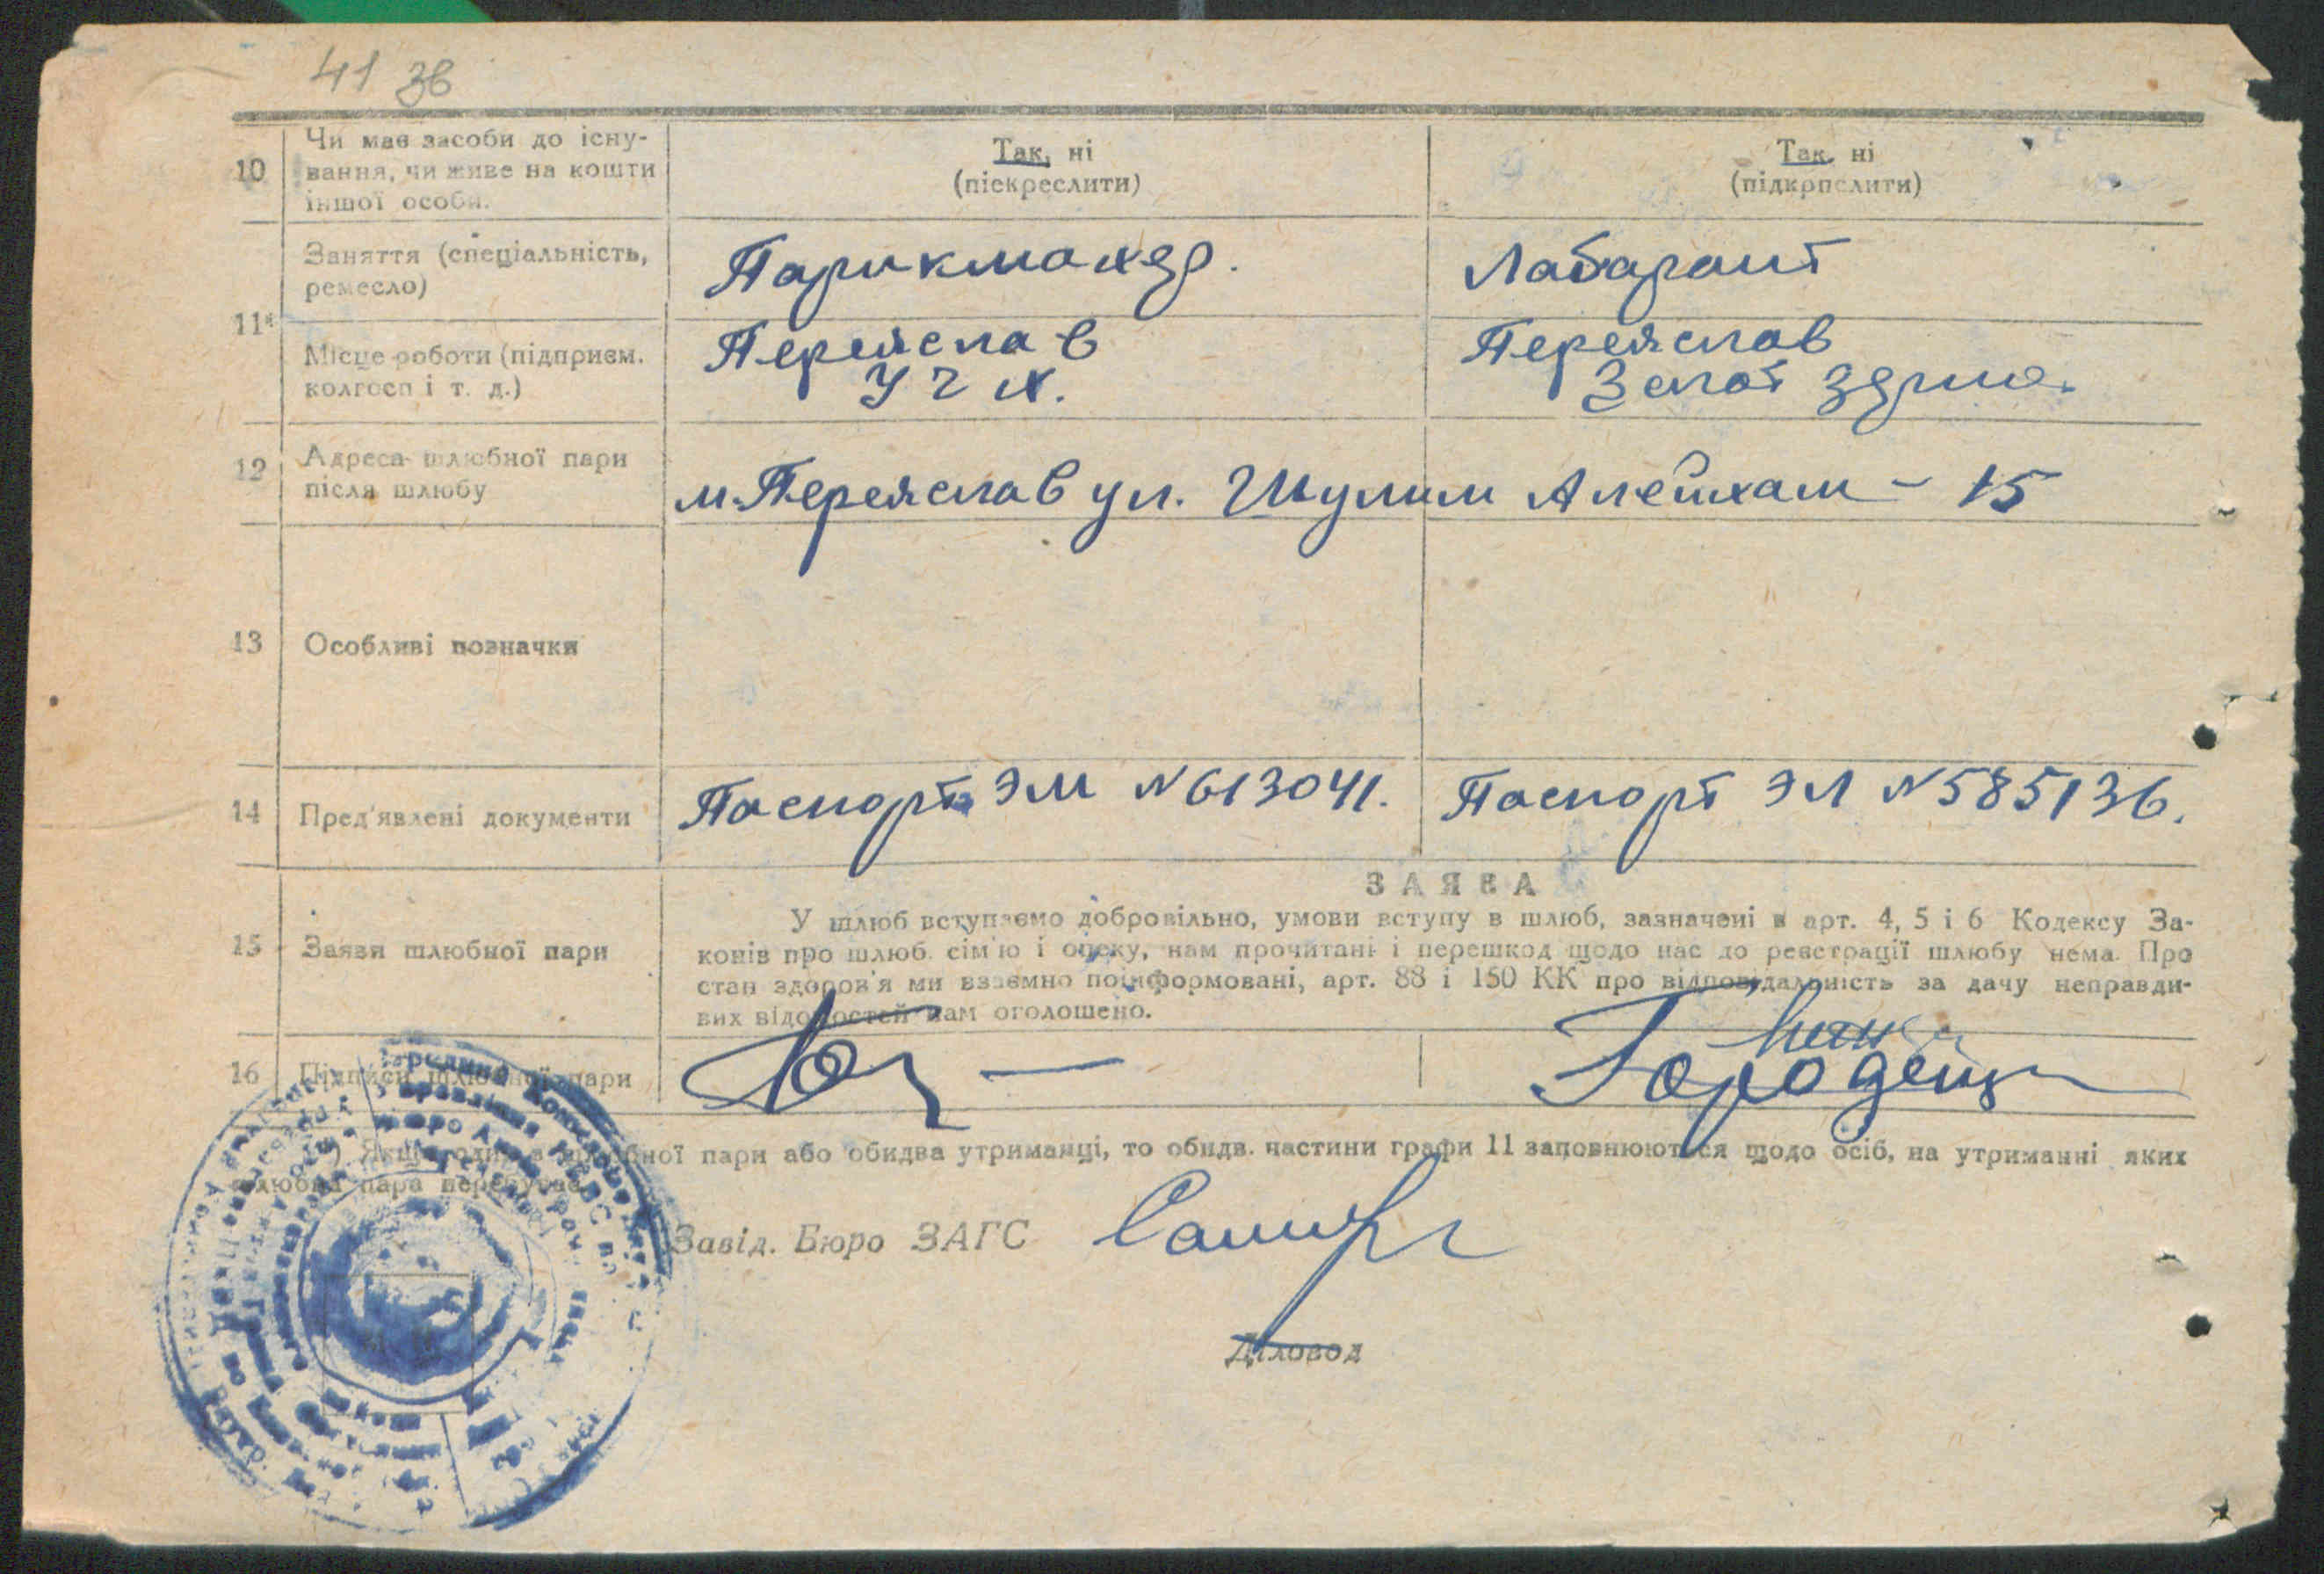 41 зв
10
Чи має засоби до існу-
вання, чи живе на кошти
іншої особи.
Так, ні
(піекреслити)
Так, ні
(підкрпслити)
11*
Заняття (спеціальність,
ремесло)
Парикмахер.
Лабарант
Місце роботи (підприєм.
колгосп і т. д.)
Переяслав
Переяслав
12
Адреса шлюбної пари
після шлюбу
м. Переяслав ул. Шулим Алейхам - 15
13
Особливі позначки
14
Пред'явлені документи
Паспорт ЭМ N 613041.
Паспорт ЭЛ N 585136.
15
Заяви шлюбної пари
ЗАЯВА
У шлюб вступаємо добровільно, умови вступу в шлюб, зазначені в арт. 4, 5 і 6 Кодексу За-
конів про шлюб. сім'ю і опеку, нам прочитані і перешкод щодо нас до реєстрації шлюбу нема. Про
стан здоров'я ми взаємно поінформовані, арт. 88 і 150 КК про відповідальність за дачу неправди-
вих відомостей нам оголошено.
16
Підписи шлюбної пари
) Якщо один з шлюбної пари або обидва утриманці, то обидв. частини графи 11 заповнюються щодо осіб, на утриманні яких
шлюбна пара перебуває.
Завід. Бюро ЗАГС
Діловод